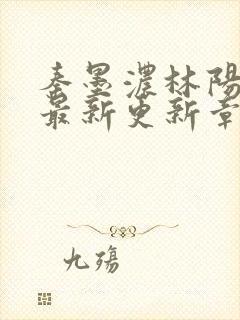 秦墨濃林陽
最新更新章
九殤